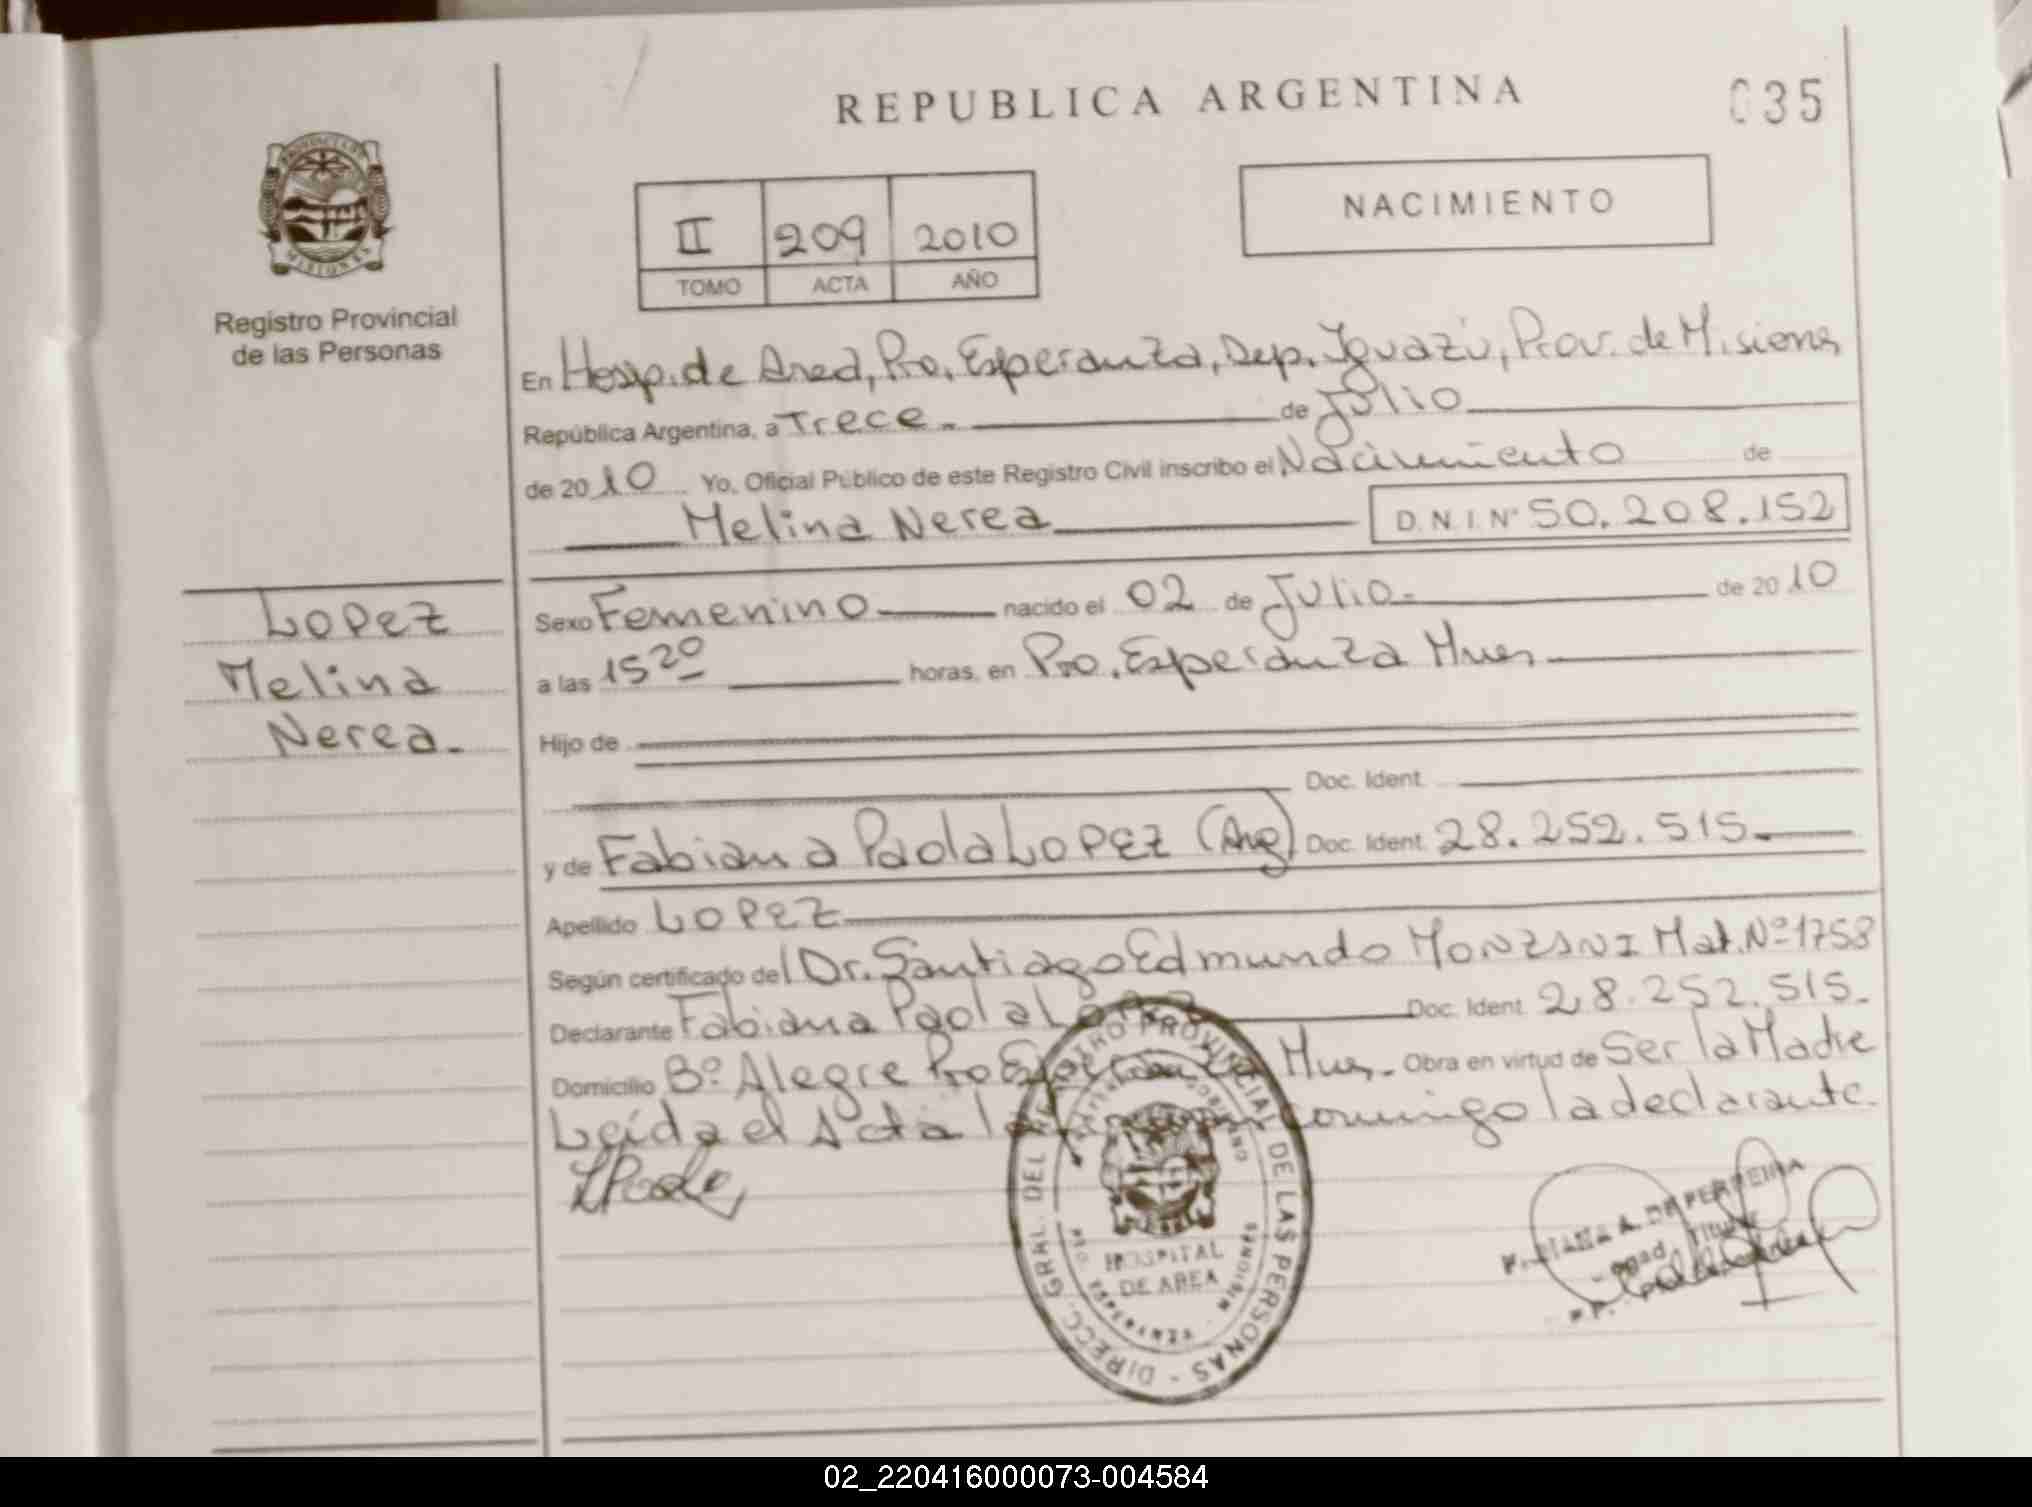 REPUBLICA ARGENTINA
035
PROVINCIA DE
MISIONES
Registro Provincial
de las Personas
II 209 2010
TOMO ACTA AÑO
NACIMIENTO
En Hosp. de Area, Pto. Esperanza, Dep. Iguazú, Prov. de Misiones
República Argentina, a Trece.- de Julio
de 2010 Yo, Oficial Público de este Registro Civil inscribo el Nacimiento de
Melina Nerea
D.N.I. Nº 50.208.152
Lopez
Melina
Nerea.-
Sexo Femenino nacido el 02 de Julio.- de 2010
a las 15 20 horas, en Pto. Esperanza Mnes
Hijo de
Doc. Ident.
y de Fabiana Paola LOPEZ (Arg) Doc. Ident. 28.252.515.-
Apellido LOPEZ
Según certificado del Dr. Santiago Edmundo MONZANI Mat. Nº 1758
Declarante Fabiana Paola Lopez Doc. Ident. 28.252.515.-
Domicilio Bº Alegre Pto Esperanza Mnes.- Obra en virtud de Ser la Madre
Leída el Acta la conmigo la declarante.
DIRECC. GRAL. DEL REGISTRO PROVINCIAL DE LAS PERSONAS
HOSPITAL
DE AREA
PTO. ESPERANZA - MISIONES
A. DE FERREIRA
02_220416000073-004584